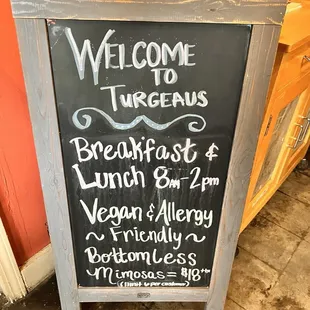 Welcome
to
Turgeaus
Breakfast &
Lunch 8am-2pm
Vegan & Allergy
~ Friendly ~
Bottomless
Mimosas = $18
(limit 6 per customer)